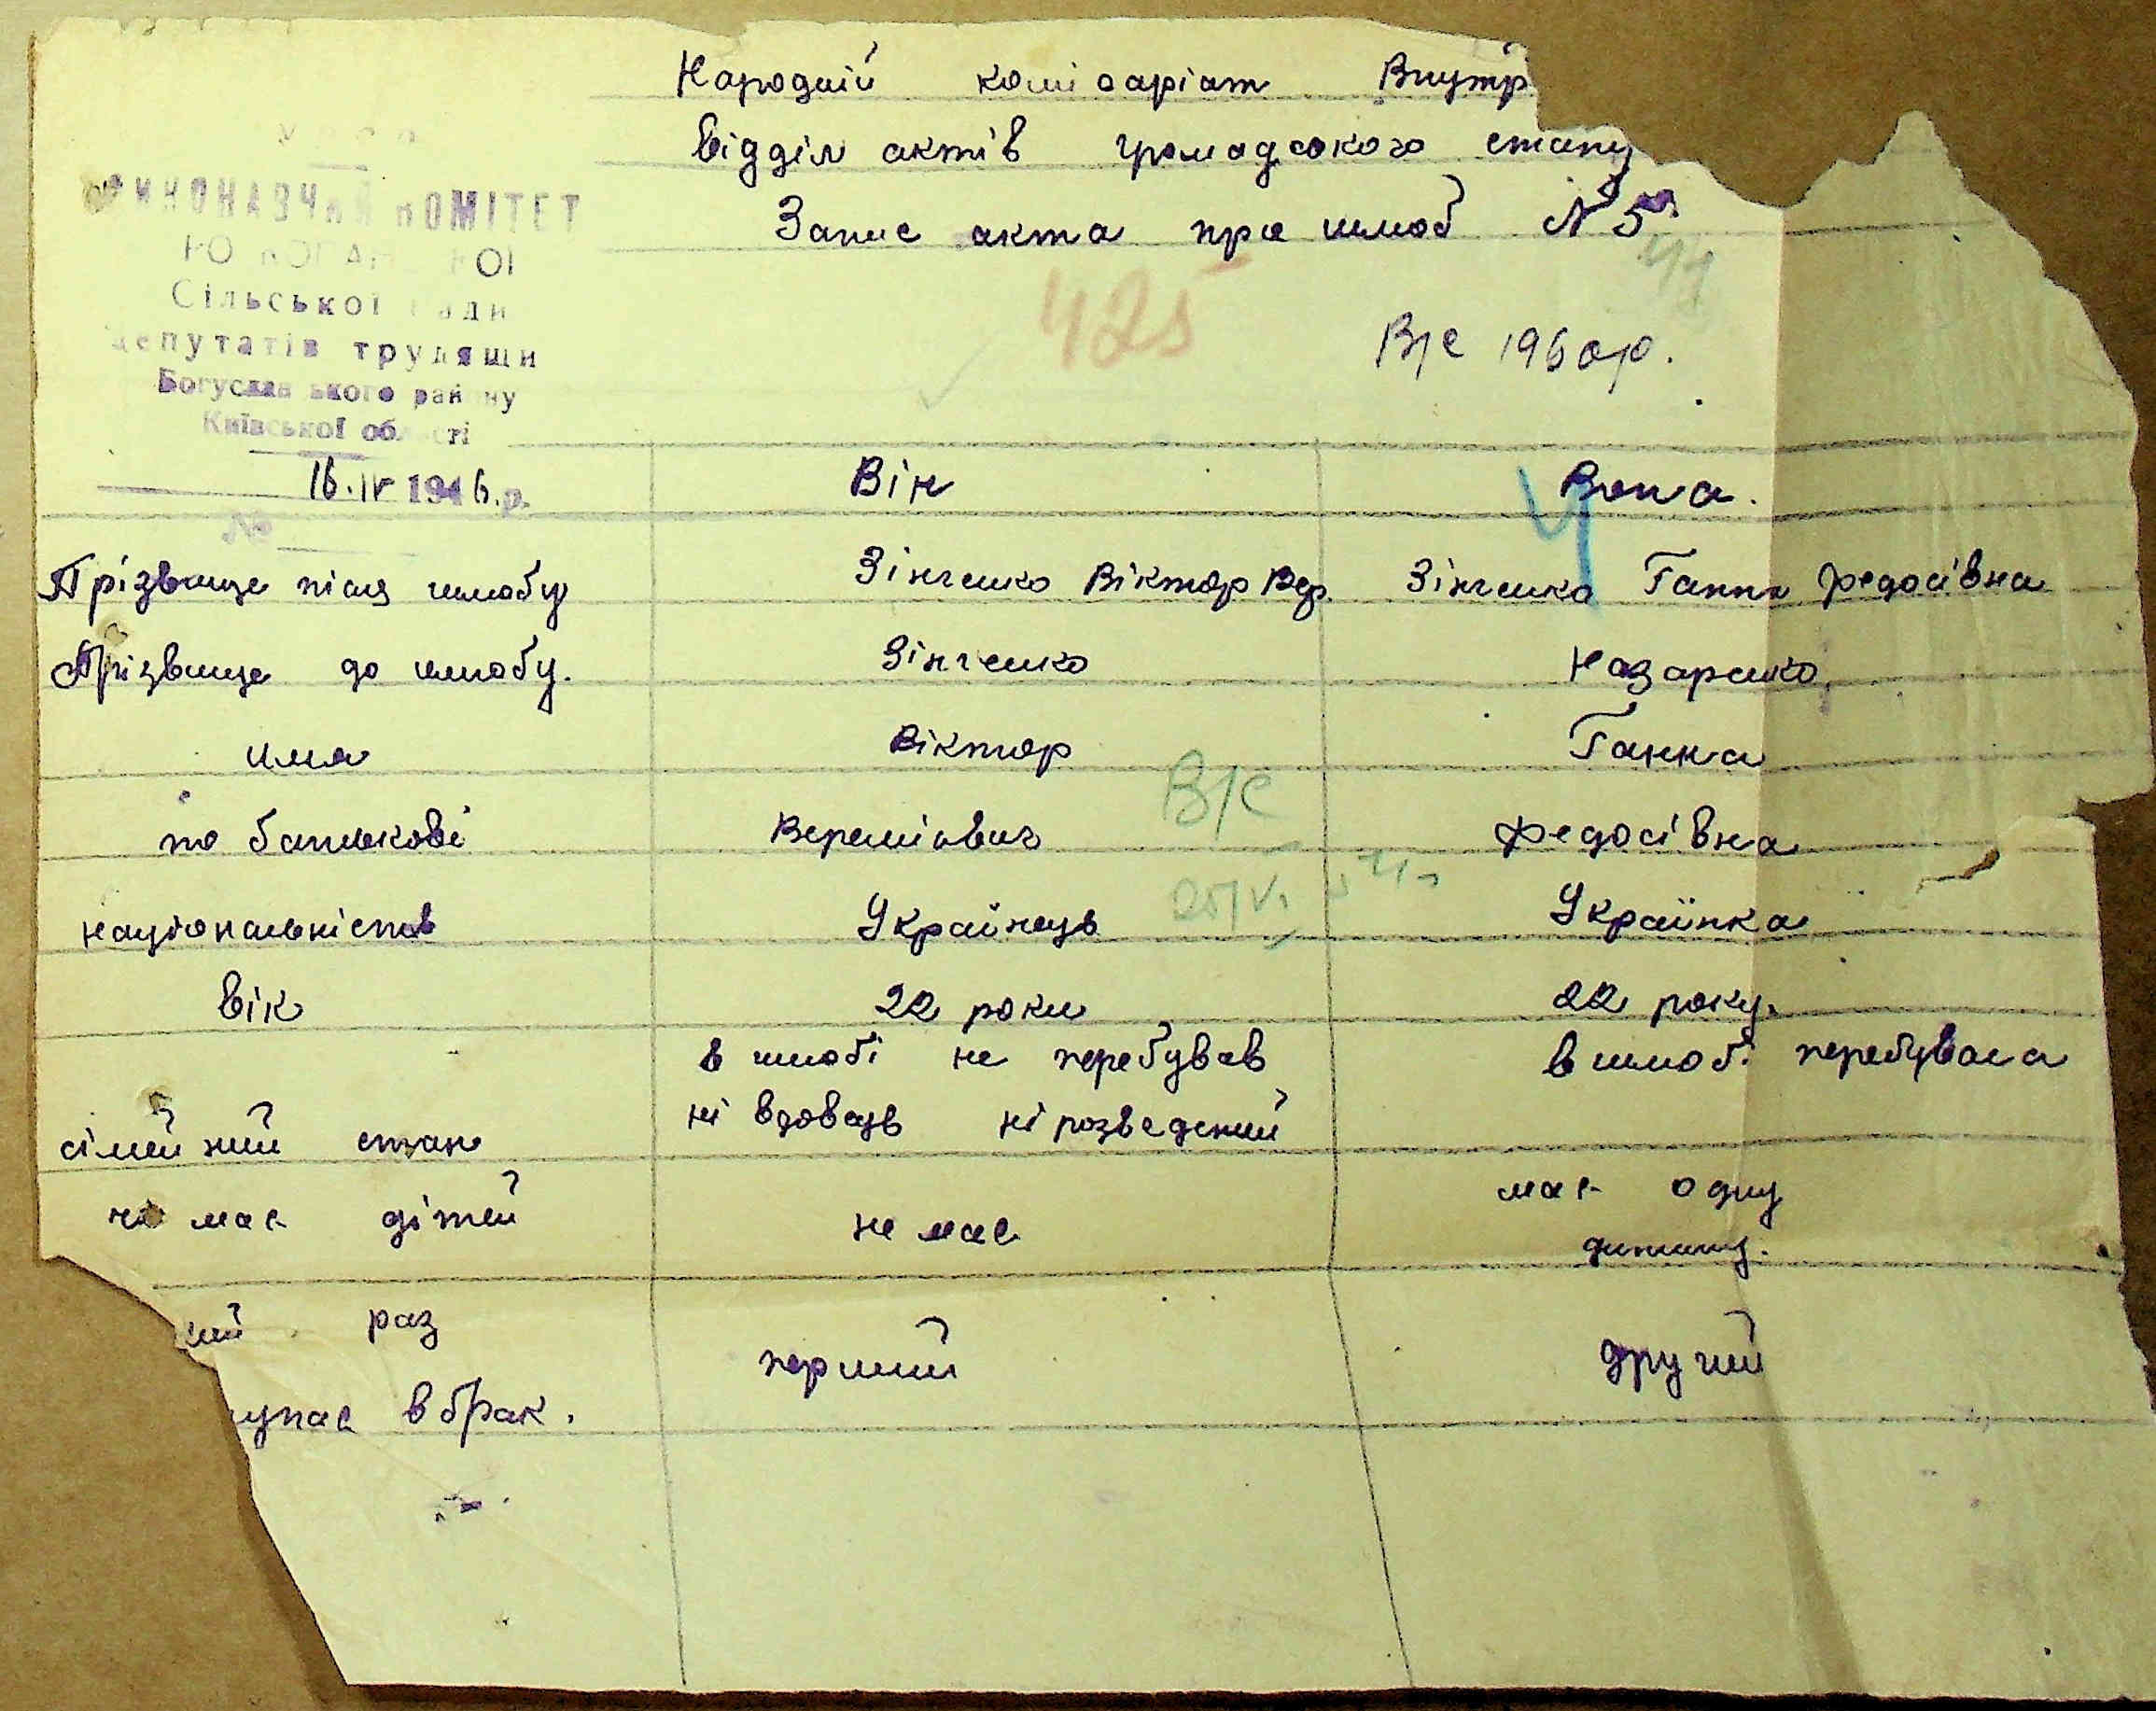 Народній комісаріат Внутр
Відділ актів громадського стану
Запис акта про шлюб № 5
ИКОНАВЧИЙ КОМІТЕТ
Сільської Ради
депутатів трудящи
Богуславського району
Київської області
16.IV 1946.р.
№
425
В/е 1960р.
Він Вона.
Прізвище після шлюбу Зінченко Віктор Вер. Зінченко Ганна Федосівна
Прізвище до шлюбу. Зінченко Назаренко
имя Віктор Ганна
по батькові Веремієвич Федосівна
В/е
національність Українець Українка
вік 22 роки 22 року.
сімейний стан в шлюбі не перебував в шлюбі перебувала
ні вдовець ні розведений
не має дітей не має має одну
дитину.
кий раз перший другий
упає в брак.